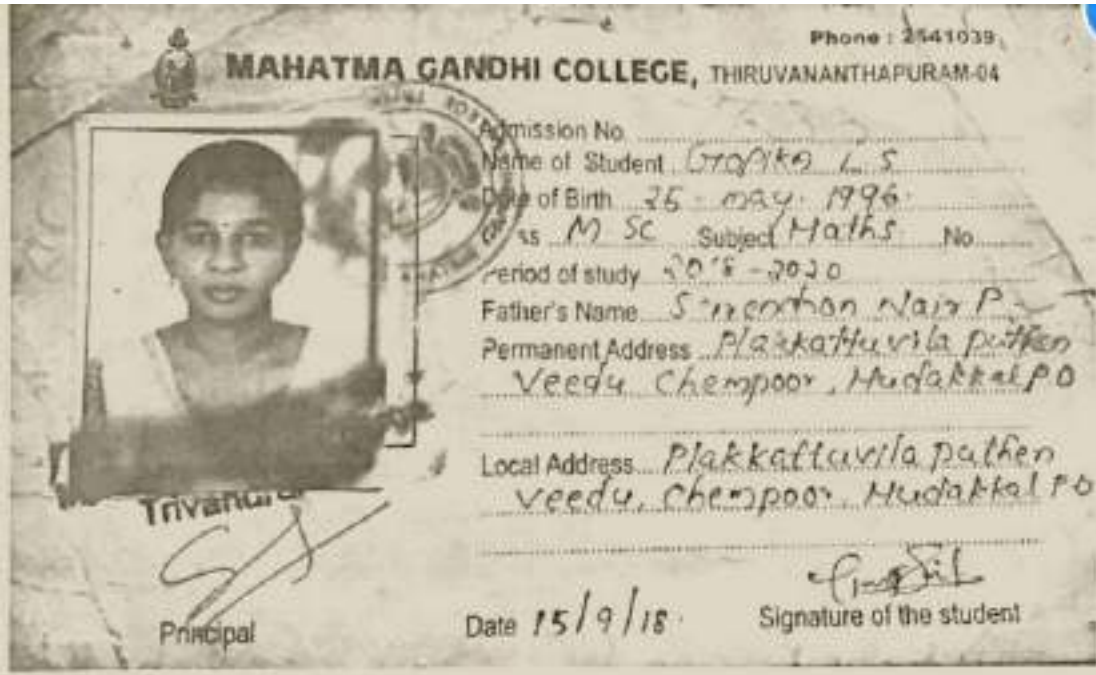 Phone : 2541039
MAHATMA GANDHI COLLEGE, THIRUVANANTHAPURAM-04
Admission No
Name of Student Gopika L S
Date of Birth 25 - may - 1996
ss M Sc Subject Maths No
Period of study 2018 - 2020
Father's Name Nair P
Permanent Address Plakkattuvila puthen
Veedu, Chempoor, Mudakkal PO
Local Address Plakkattuvila puthen
Veedu, Chempoor, Mudakkal PO
Principal
Date 15/9/18
Signature of the student